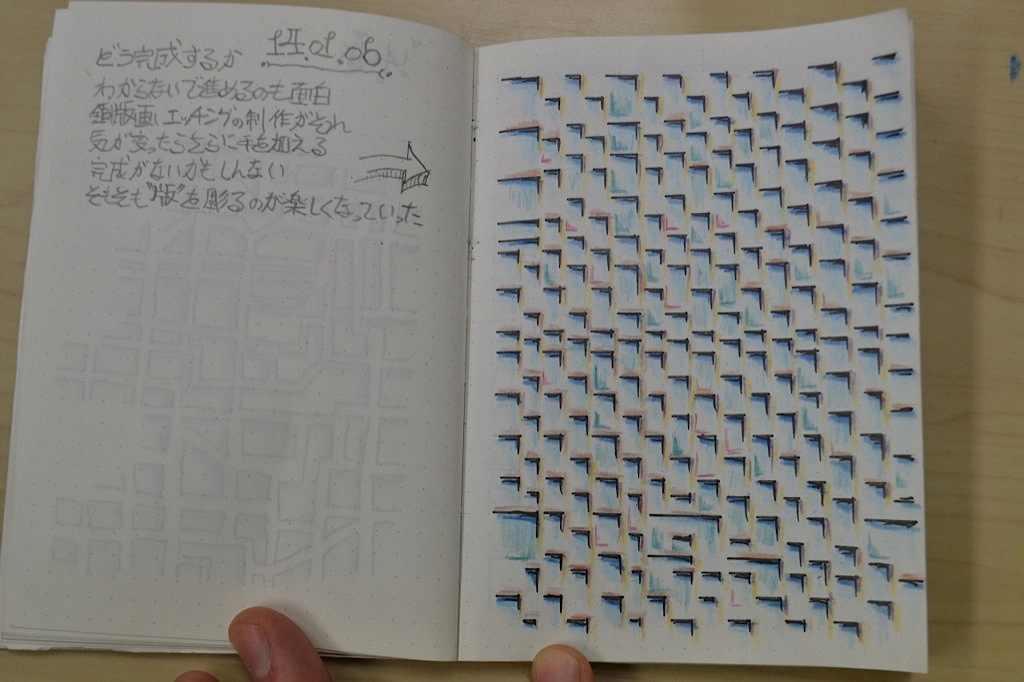 14.01.06
どう完成するか
わからないで進めるのも面白
銅版画、エッチングの制作がそれ
気が変ったらさらに手を加える
完成がないかもしんない
そもそも"版"を彫るのが楽しくなっていった